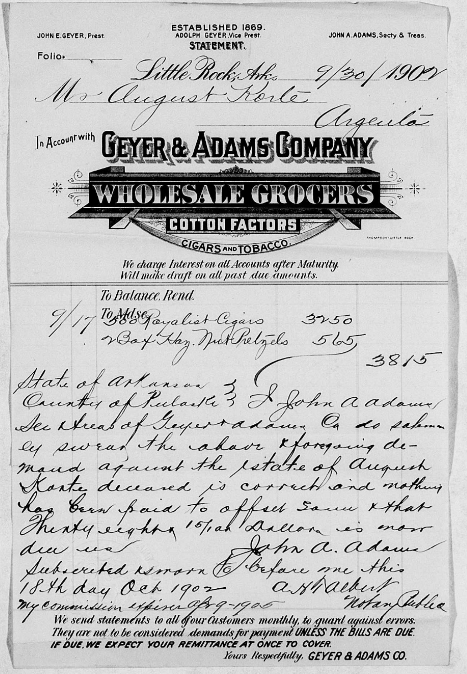 ESTABLISHED 1869.
JOHN E. GEYER, Prest. ADOLPH GEYER, Vice Prest. JOHN A. ADAMS, Secty & Treas.
STATEMENT.
Folio
Little Rock, Ark. 9/30/1902
Mr August Korte
Argenta
In Account with
GEYER & ADAMS COMPANY
WHOLESALE GROCERS
COTTON FACTORS
CIGARS AND TOBACCO.
We charge Interest on all Accounts after Maturity.
Will make draft on all past due amounts.
To Balance, Rend.
To Mdse.
9/17 500 Royalist Cigars 32 50
2 Box Haz. Nut Pretzels 5 65
38 15
State of Arkansas }
County of Pulaski } I John A Adams
Sec & Treas of Geyer & Adams Co do solemn
ly swear the above & foregoing de-
mand against the estate of August
Korte deceased is correct and nothing
has been paid to offset same & that
Thirty eight & 15/100 Dollars is now
due us John A. Adams
Subscribed & sworn to before me this
18th day Oct 1902 Albert
my commission expires 9-1905 Notary Public
We send statements to all of our Customers monthly, to guard against errors.
They are not to be considered demands for payment UNLESS THE BILLS ARE DUE.
IF DUE, WE EXPECT YOUR REMITTANCE AT ONCE TO COVER.
Yours Respectfully, GEYER & ADAMS CO.